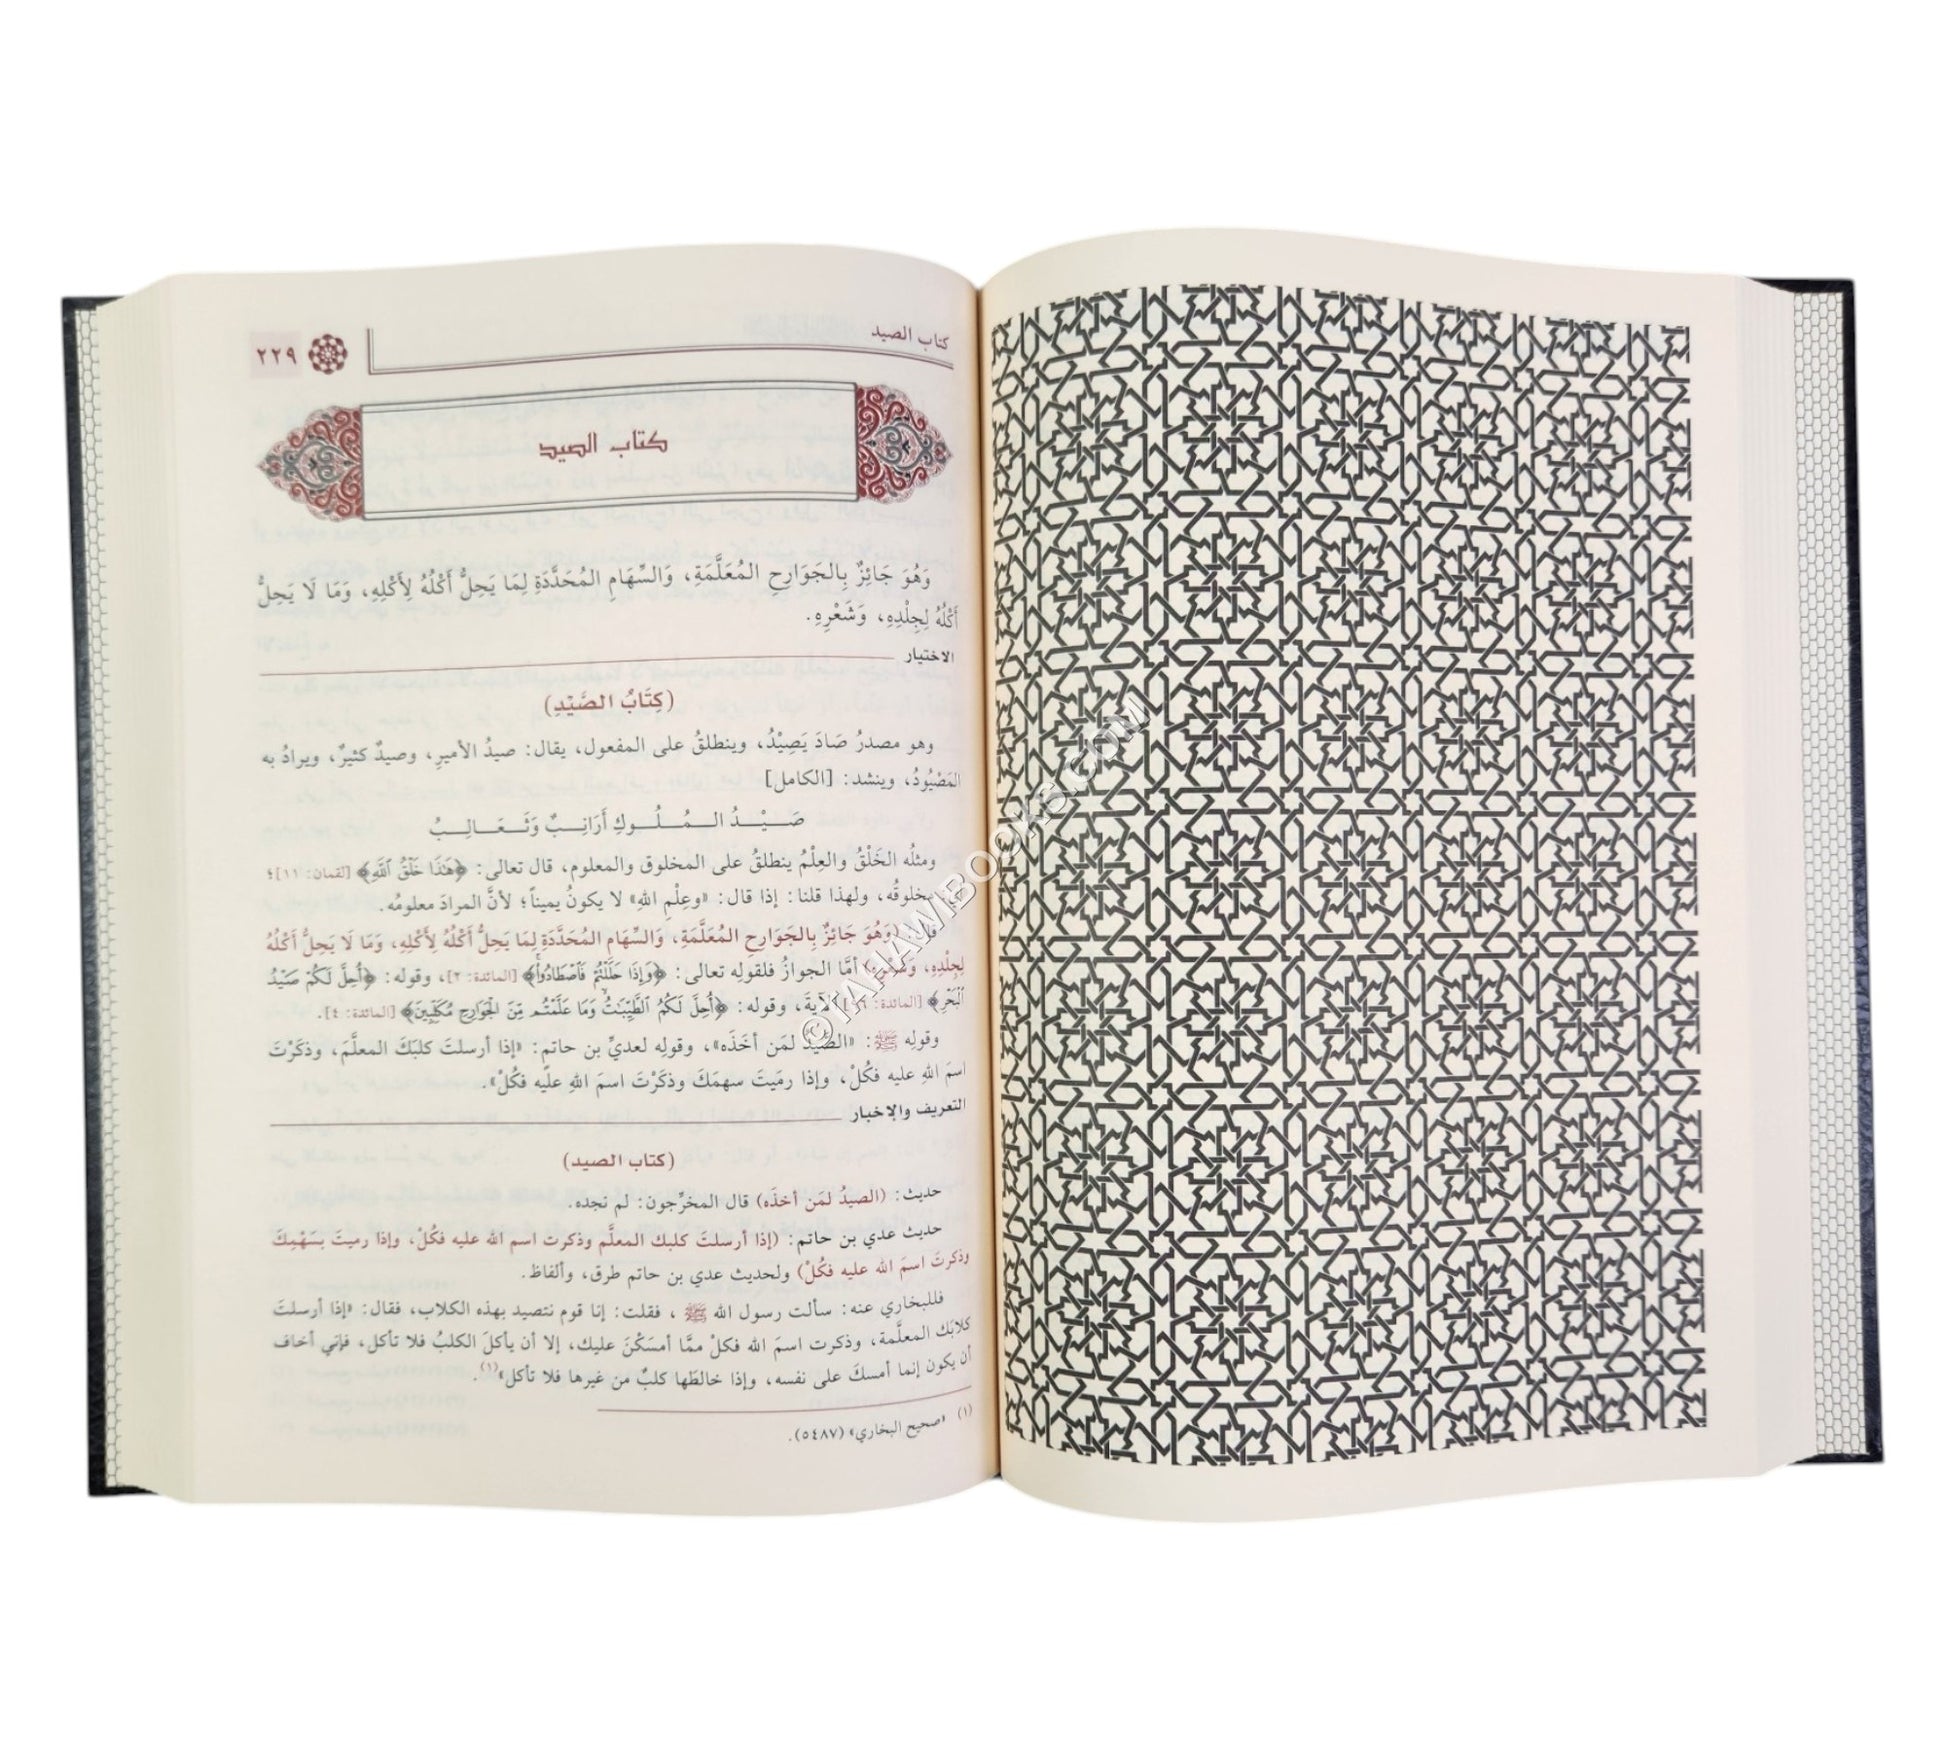 كتاب الصيد
٢٢٩
كتاب الصيد
وَهُوَ جَائِزٌ بِالجَوَارِحِ المُعَلَّمَةِ، وَالسِّهَامِ المُحَدَّدَةِ لِمَا يَحِلُّ أَكْلُهُ لِأَكْلِهِ، وَمَا لَا يَحِلُّ
أَكْلُهُ لِجِلْدِهِ، وَشَعْرِهِ.
الاختيار
(كِتَابُ الصَّيْدِ)
وهو مصدرُ صَادَ يَصِيْدُ، وينطلقُ على المفعول، يقال: صيدُ الأميرِ، وصيدٌ كثيرٌ، ويرادُ به
المَصْيُودُ، وينشد: [الكامل]
صَـيْـدُ الـمُـلُـوكِ أَرَانِـبٌ وَثَـعَـالِـبُ
ومثلُه الخَلْقُ والعِلْمُ ينطلقُ على المخلوق والمعلوم، قال تعالى: ﴿هَٰذَا خَلْقُ ٱللَّهِ﴾ [لقمان: ١١]؛
أي مخلوقُه، ولهذا قلنا: إذا قال: «وعِلْمِ اللهِ» لا يكونُ يميناً؛ لأنَّ المرادَ معلومُه.
قال: (وَهُوَ جَائِزٌ بِالجَوَارِحِ المُعَلَّمَةِ، وَالسِّهَامِ المُحَدَّدَةِ لِمَا يَحِلُّ أَكْلُهُ لِأَكْلِهِ، وَمَا لَا يَحِلُّ أَكْلُهُ
لِجِلْدِهِ، وَشَعْرِهِ) أمَّا الجوازُ فلقولِه تعالى: ﴿وَإِذَا حَلَلْتُمْ فَٱصْطَادُوا۟﴾ [المائدة: ٢]، وقوله: ﴿أُحِلَّ لَكُمْ صَيْدُ
ٱلْبَحْرِ﴾ [المائدة: ٩٦] الآيةَ، وقوله: ﴿أُحِلَّ لَكُمُ ٱلطَّيِّبَٰتُ وَمَا عَلَّمْتُم مِّنَ ٱلْجَوَارِحِ مُكَلِّبِينَ﴾ [المائدة: ٤].
وقولِه ﷺ: «الصَّيدُ لمَن أخَذَه»، وقولِه لعديِّ بن حاتمٍ: «إذا أرسلتَ كلبَكَ المعلَّمَ، وذكَرْتَ
اسمَ اللهِ عليه فكُلْ، وإذا رمَيتَ سهمَكَ وذكَرْتَ اسمَ اللهِ عليه فكُلْ».
التعريف والإخبار
(كتاب الصيد)
حديث: (الصيدُ لمَن أخذَه) قال المخرِّجون: لم نجده.
حديث عدي بن حاتم: (إذا أرسلتَ كلبك المعلَّم وذكرت اسم الله عليه فكُلْ، وإذا رميتَ بسَهْمِكَ
وذكرتَ اسمَ الله عليه فكُلْ) ولحديث عدي بن حاتم طرق، وألفاظ.
فللبخاري عنه: سألت رسول الله ﷺ، فقلت: إنا قوم نتصيد بهذه الكلاب، فقال: «إذا أرسلتَ
كلابَك المعلَّمة، وذكرت اسم الله فكلْ ممَّا أمسَكْنَ عليك، إلا أن يأكلَ الكلبُ فلا تأكل، فإني أخاف
أن يكون إنما أمسكَ على نفسه، وإذا خالطَها كلبٌ من غيرها فلا تأكل»(١).
(١) «صحيح البخاري» (٥٤٨٧).
©TAHAWIBOOKS.COM